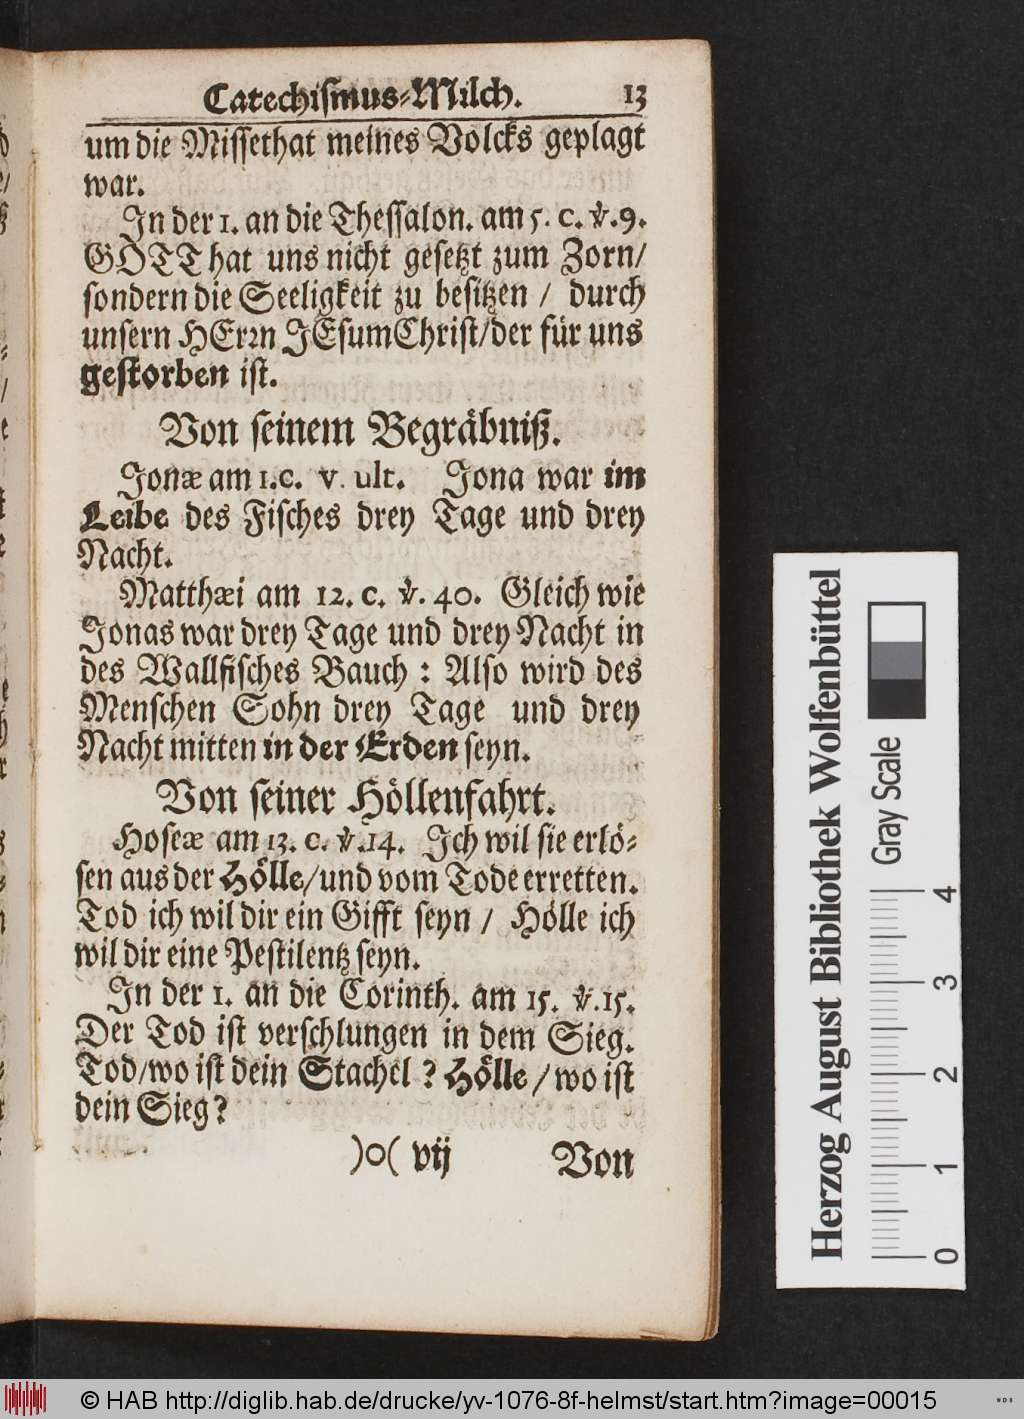 Catechismus-Milch. 13
um die Missethat meines Volcks geplagt
war.
In der 1. an die Thessalon. am 5. c. ℣. 9.
GOTT hat uns nicht gesetzt zum Zorn/
sondern die Seeligkeit zu besitzen / durch
unsern HErꝛn JEsum Christ/der für uns
gestorben ist.
Von seinem Begräbniß.
Jonæ am 1. c. v. ult. Jona war im
Leibe des Fisches drey Tage und drey
Nacht.
Matthæi am 12. c. ℣. 40. Gleich wie
Jonas war drey Tage und drey Nacht in
des Wallfisches Bauch : Also wird des
Menschen Sohn drey Tage und drey
Nacht mitten in der Erden seyn.
Von seiner Höllenfahrt.
Hoseæ am 13. c. ℣. 14. Ich wil sie erlö-
sen aus der Hölle/und vom Tode erretten.
Tod ich wil dir ein Gifft seyn / Hölle ich
wil dir eine Pestilentz seyn.
In der 1. an die Corinth. am 15. ℣. 15.
Der Tod ist verschlungen in dem Sieg.
Tod/wo ist dein Stachel ? Hölle / wo ist
dein Sieg?
)o( vij Von
Herzog August Bibliothek Wolfenbüttel
Gray Scale
0 1 2 3 4
© HAB http://diglib.hab.de/drucke/yv-1076-8f-helmst/start.htm?image=00015